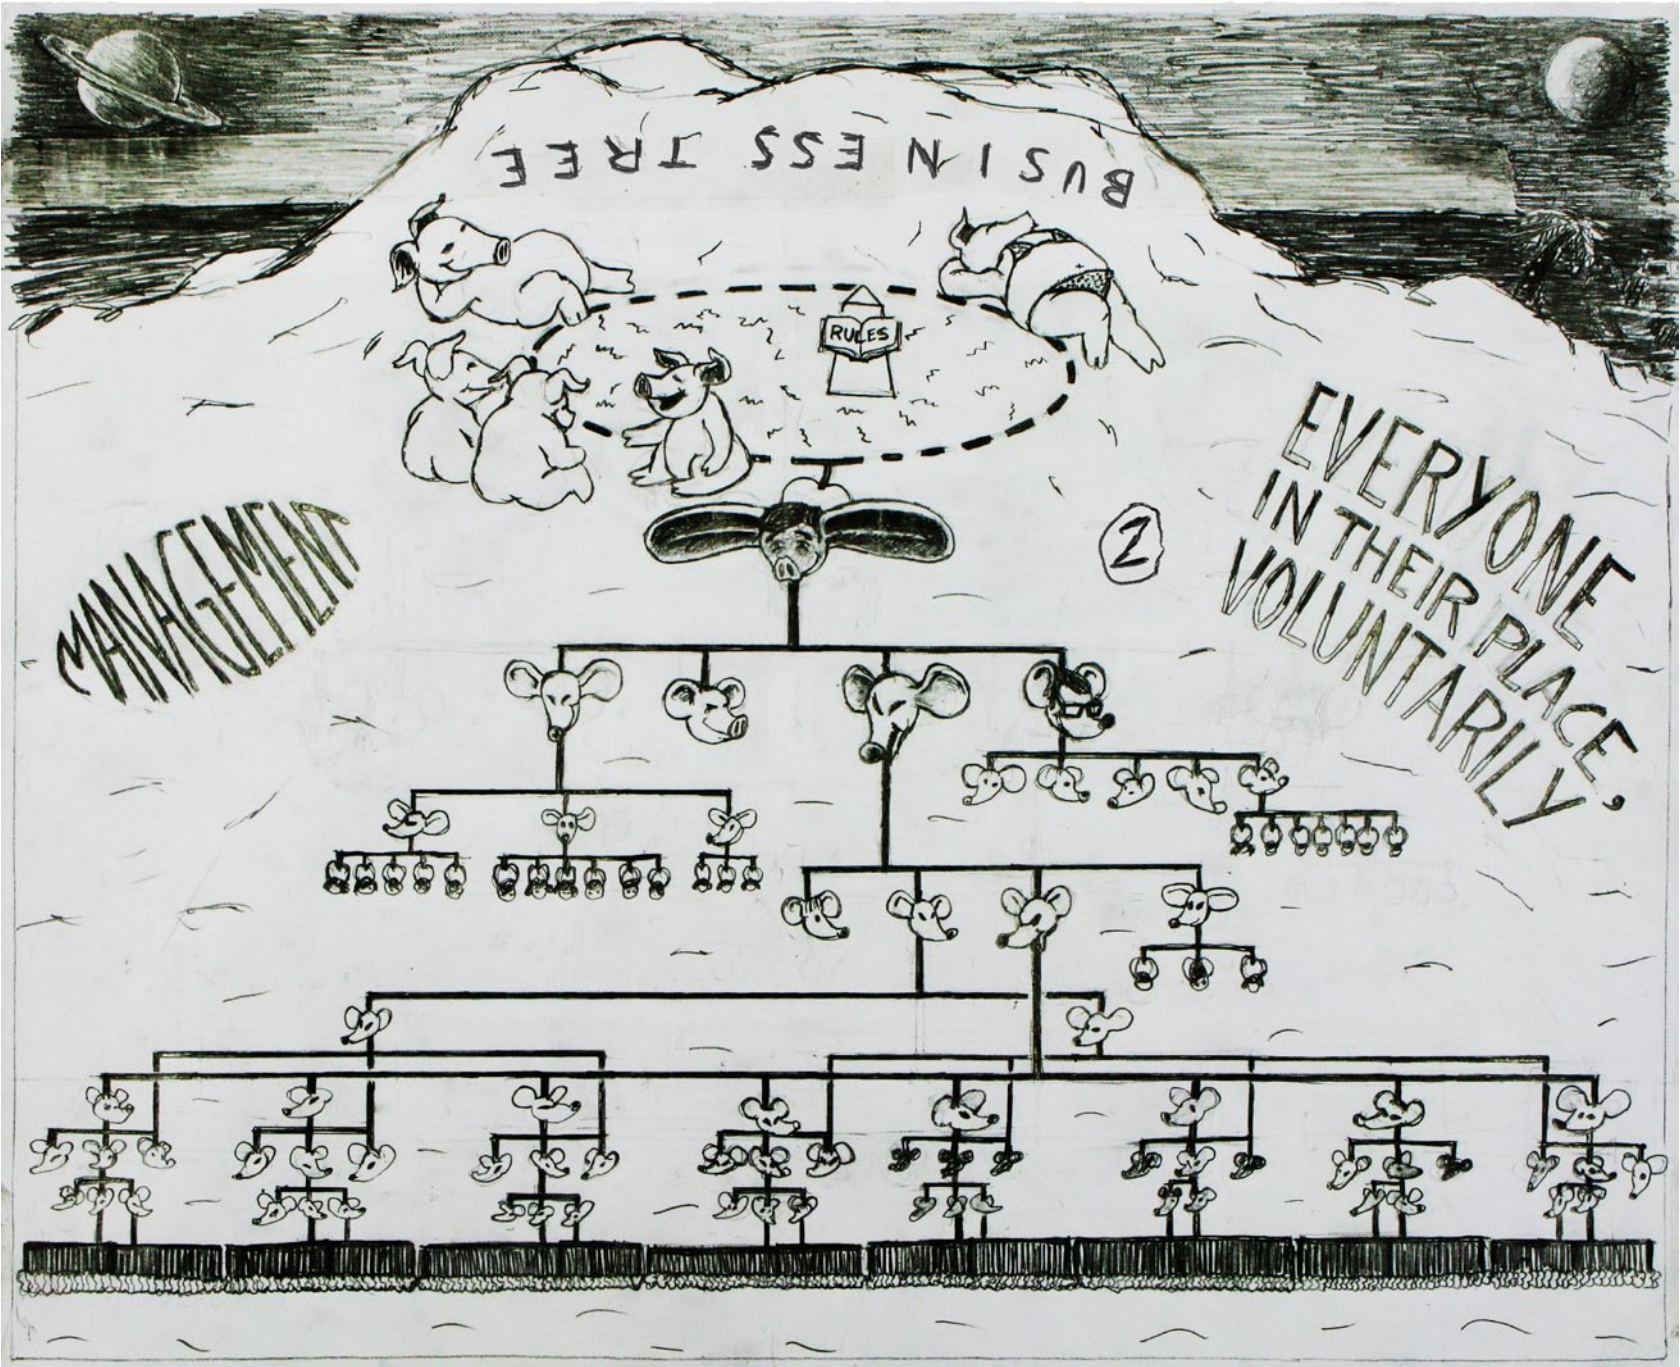 BUSINESS TREE
RULES
MANAGEMENT
2
EVERYONE
IN THEIR PLACE,
VOLUNTARILY